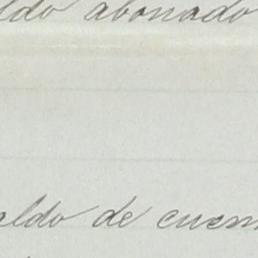 ldo abonado
aldo de cuen